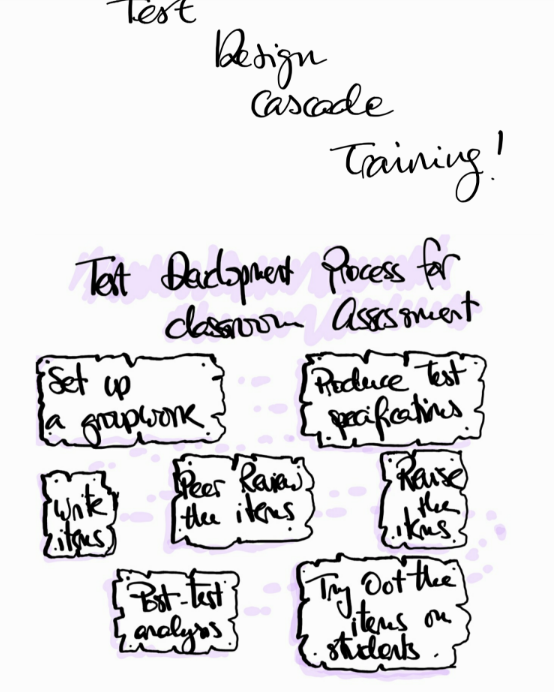 Test
Design
Cascade
Training!
Test Development Process for
classroom Assessment
Set up
a groupwork
Produce Test
specifications
Write
items
Peer Review
the items
Revise
the
items
Post-test
analysis
Try Out the
items on
students.